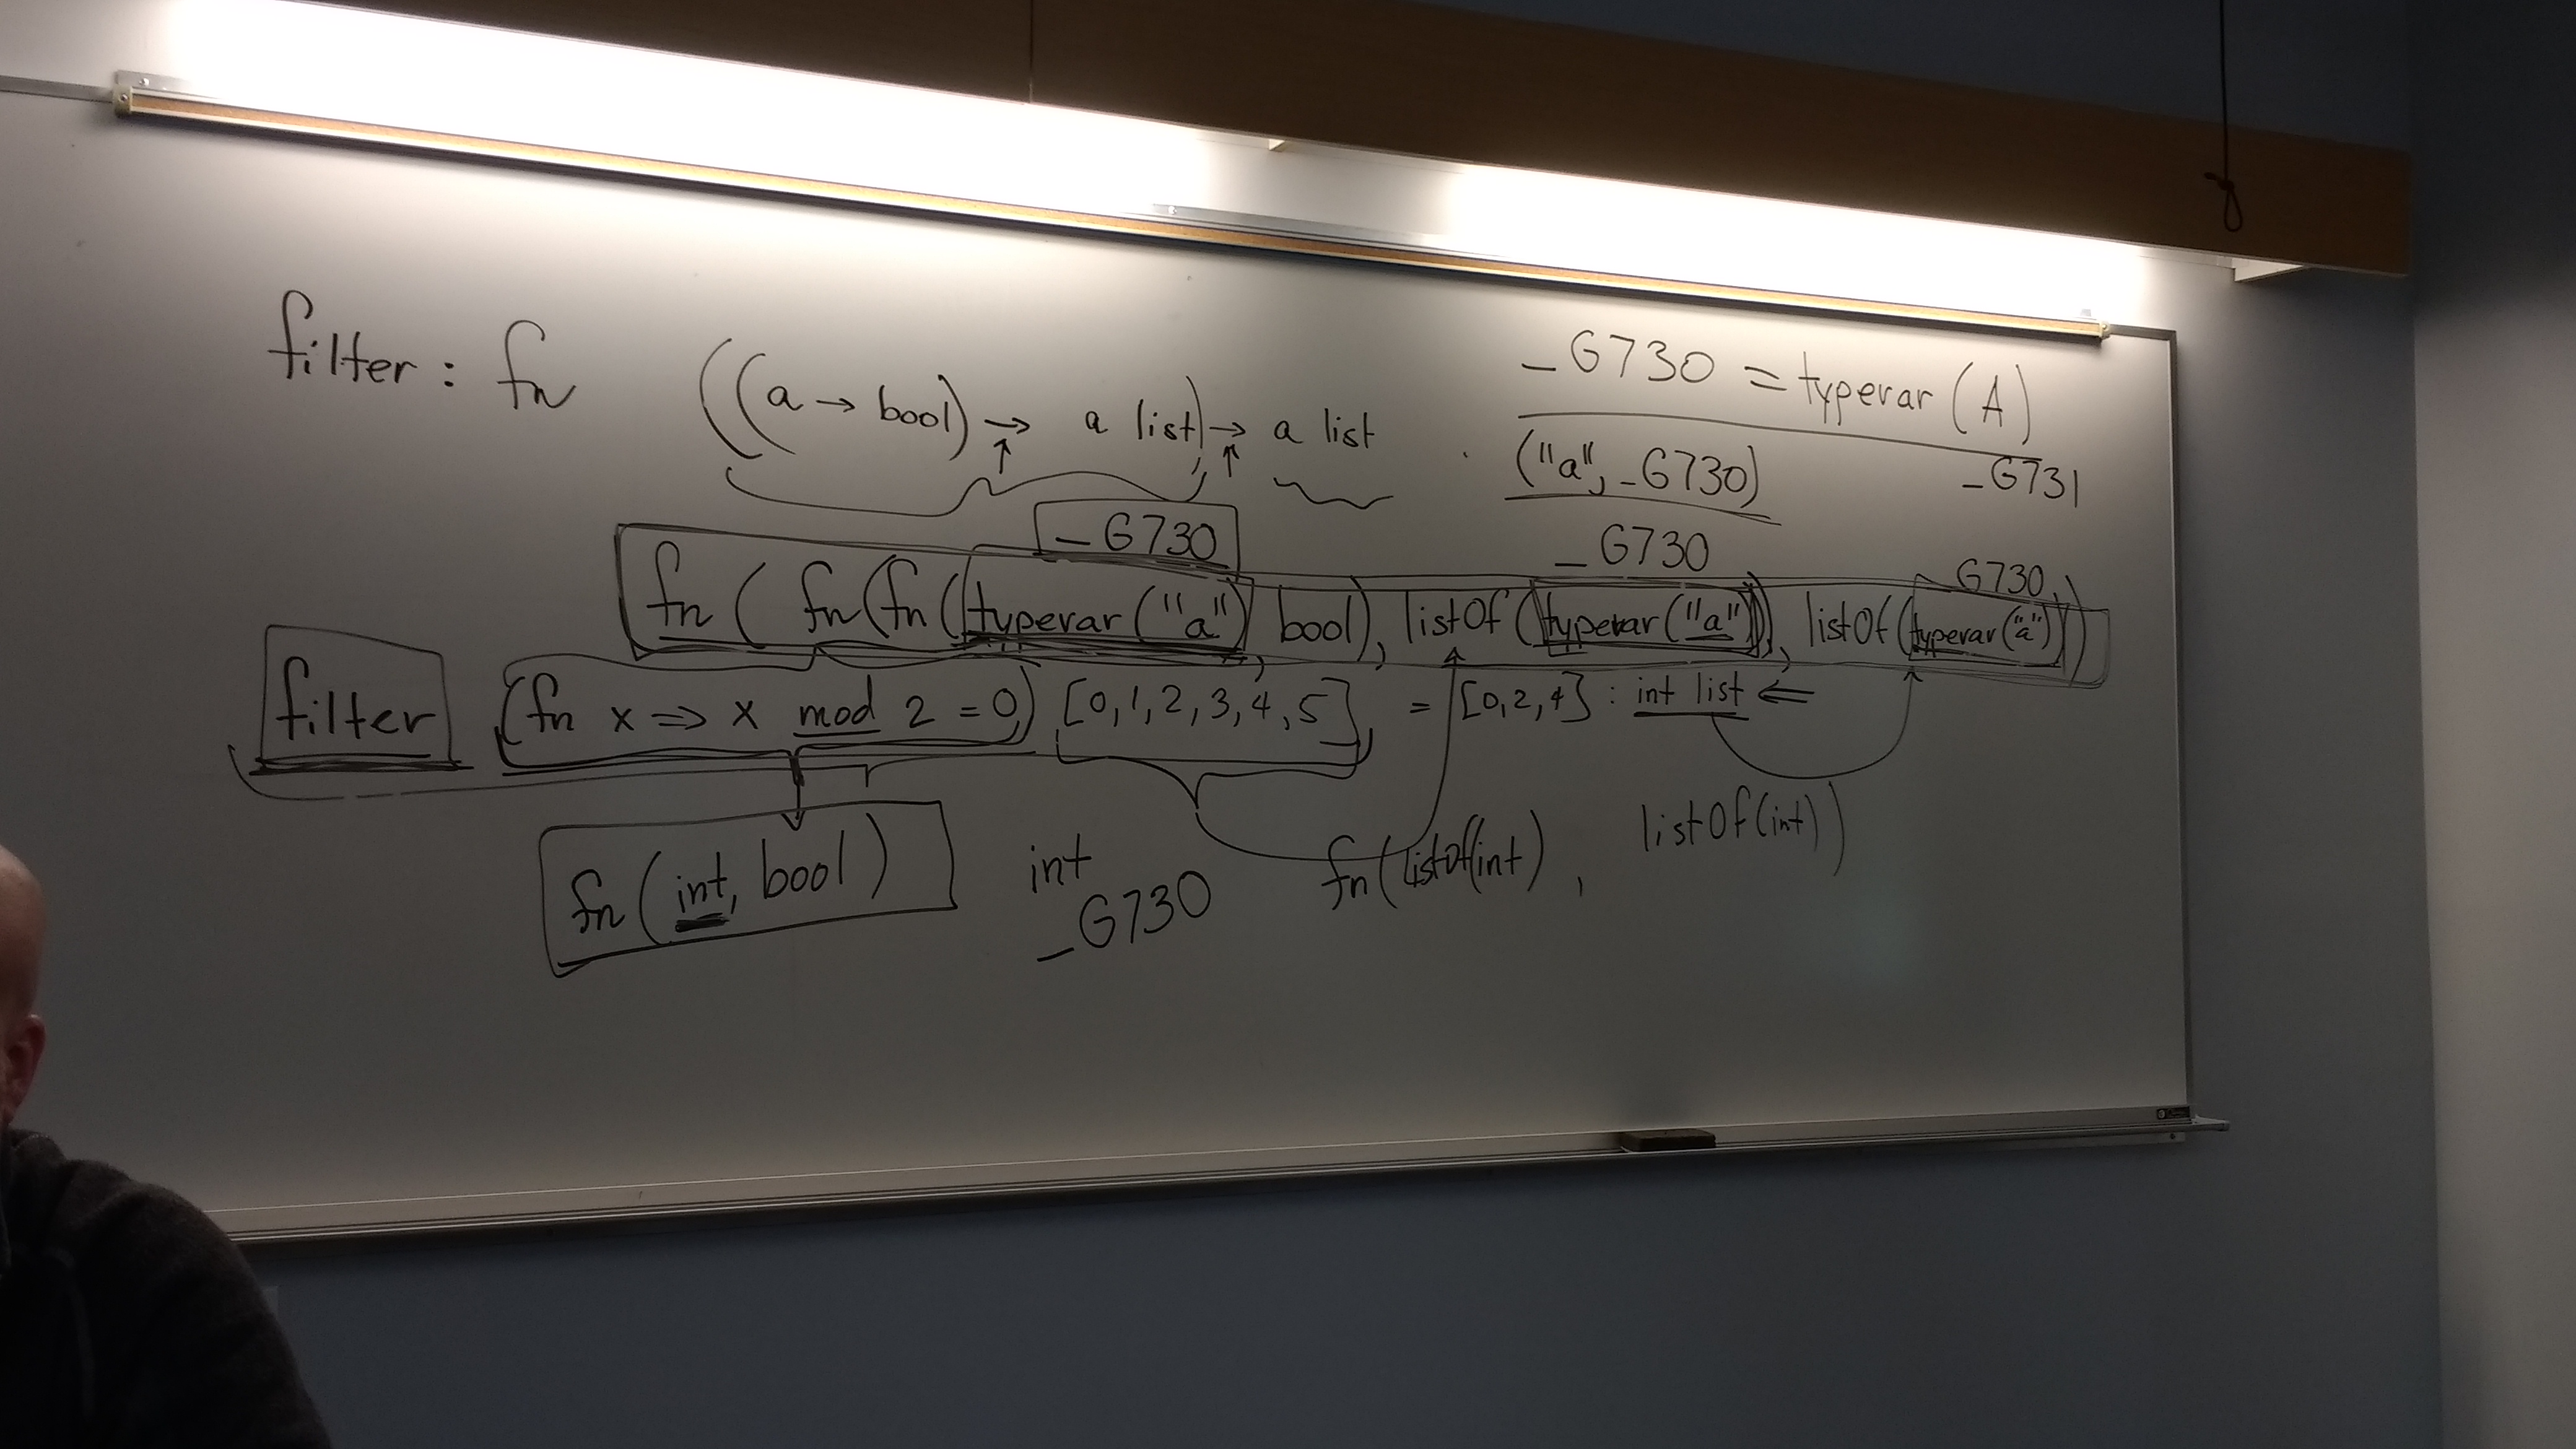 filter : fn ((a → bool) → a list) → a list
_G730 = typevar (A)
("a", _G730) _G731
_G730 _G730 G730
fn ( fn (fn (typevar ("a") bool), listOf (typevar ("a")), listOf (typevar ("a")))
filter (fn x => x mod 2 = 0) [0,1,2,3,4,5] = [0,2,4] : int list ⇐
fn (int, bool) int fn (listOf(int), listOf(int))
_G730